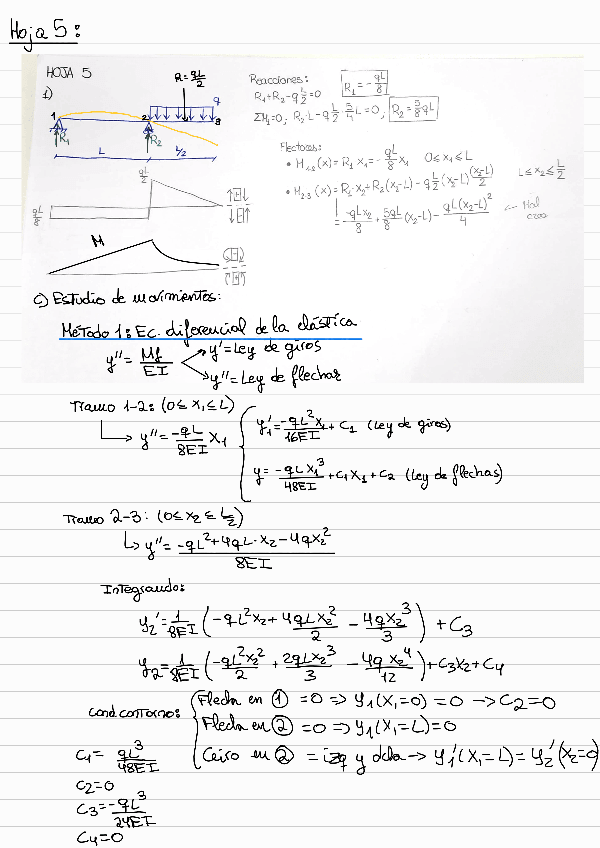 Hoja 5:
HOJA 5
1)
R = qL/2
q
1
2
3
R1
R2
L
L/2
Reacciones:
R1+R2-q L/2=0
R1 = -qL/8
ΣM1=0; R2·L-q L/2 · 5/4 L=0; R2 = 5/8 qL
Flectores:
• M1-2(x)=R1 x1=-qL/8 x1 0≤x1≤L
• M2-3(x)=R1·x2+R2(x2-L)-q L/2 (x2-L) (x2-L)/2 L≤x2≤L/2
= -qLx2/8 + 5qL/8 (x2-L) - qL(x2-L)²/4 ← Mal creo
qL/2
qL/8
M
c) Estudio de movimientos:
Método 1: Ec. diferencial de la elástica
y''= Mf/EI
y'=Ley de giros
y''=Ley de flechas
Tramo 1-2: (0≤x1≤L)
y''=-qL/8EI x1
y1'=-qL²x1/16EI + C1 (Ley de giros)
y=-qLx1³/48EI + C1x1+C2 (Ley de flechas)
Tramo 2-3: (0≤x2≤L/2)
y''= -qL²+4qL·x2-4qx2²/8EI
Integrando:
y2'=1/8EI (-qL²x2+4qLx2²/2 - 4qx2³/3) + C3
y2=1/8EI (-qL²x2²/2 + 2qLx2³/3 - 4qx2⁴/12) + C3x2+C4
Cond contorno:
Flecha en ① =0 => y1(x1=0)=0 → C2=0
Flecha en ② =0 => y1(x1=L)=0
Giro en ② = izq y dcha → y1'(x1=L)=y2'(x2=0)
C1= qL³/48EI
C2=0
C3=-qL³/24EI
C4=0